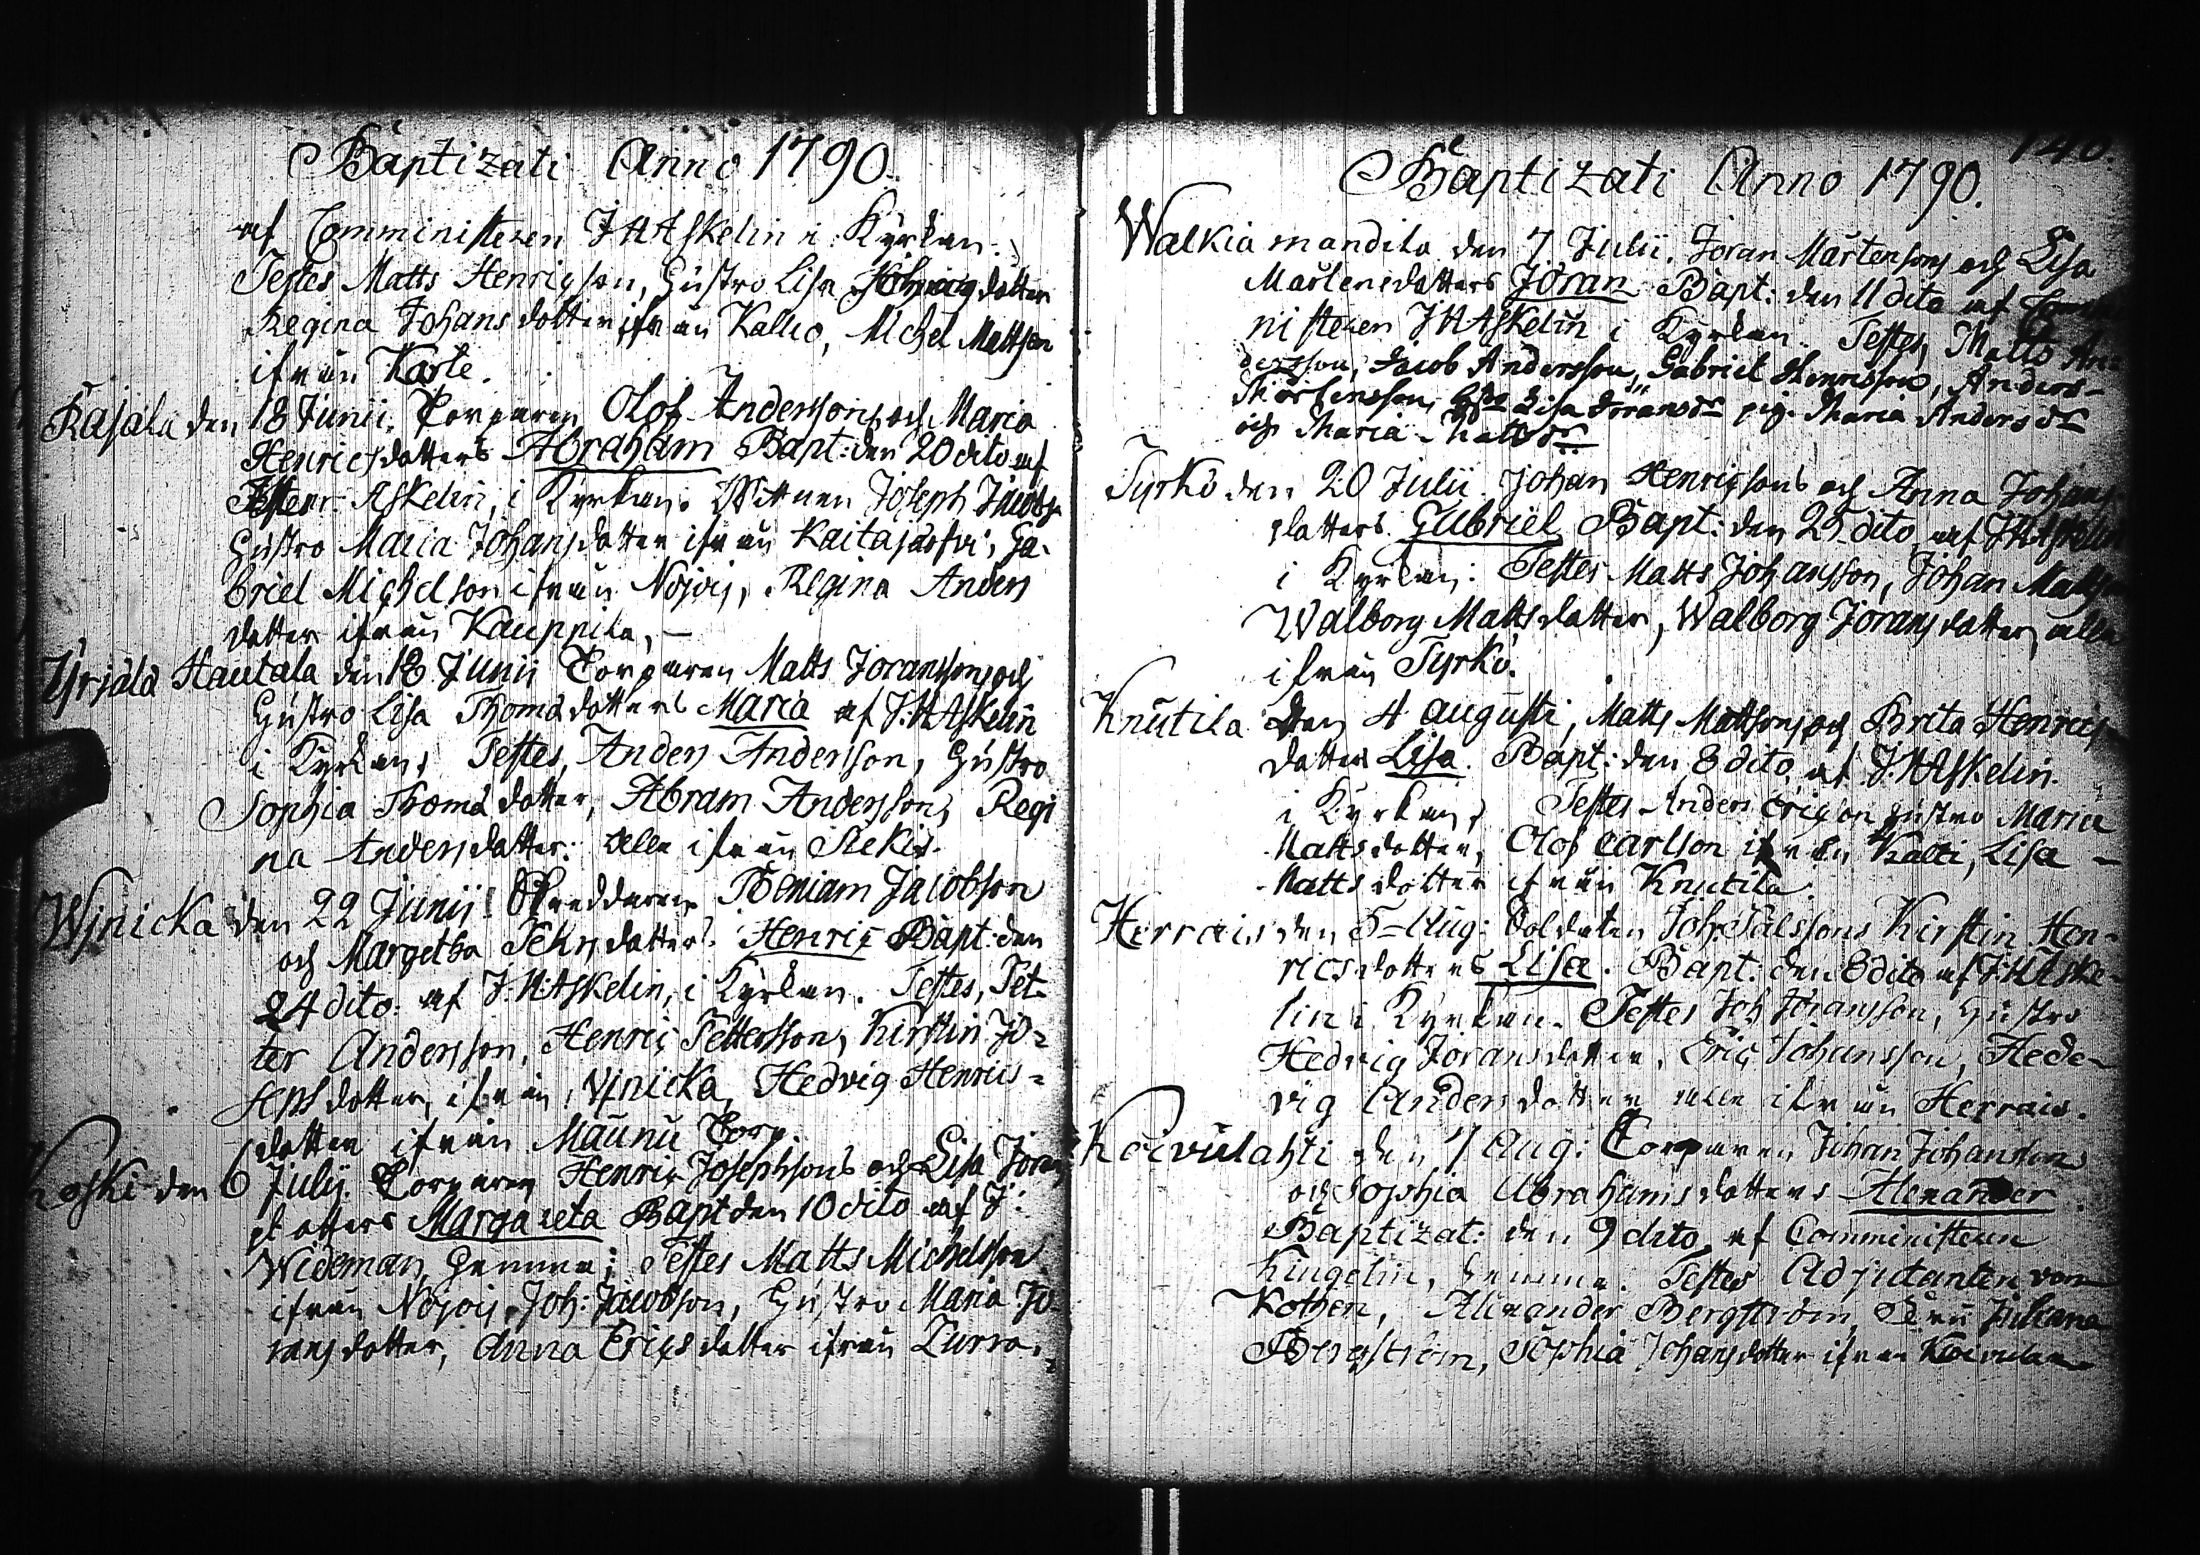 Baptizati Anno 1790.
af Comministeren J H Askelin i Kyrkan.
Testes Matts Henricson, Hustro Lisa dotter
Regina Johansdotter ifrån Kallio, Michel Mattson
ifrån Karte.
Rajala den 18 Junii. Torparen Olof Anderssons och Maria
Henricsdotters Abraham Bapt: den 20 dito af
Askelin, i Kyrkan. Wittnen Joseph Jacobs
Hustro Maria Johansdotter ifrån Kaitajärfvi, Ga-
briel Michelson ifrån Nojois, Regina Anders
dotter ifrån Kauppila,
Yrjälä Hautala den 18 Junii Torparen Matts Joranssons och
Hustro Lisa Thomädotters Maria af J: H Askelin
i Kyrkan, Testes, Anders Andersson, Hustro
Sophia Thomädotter, Abram Andersson, Regi
na Andersdotter: alla ifrån Siekis.
Winicka den 22 Junii Skreddaren Beniam Jacobson
och Margetha dotters. Henric Bapt: den
24 dito: af J. H Askelin, i Kyrkan. Testes, Pet-
ter Andersson, Henric Pettersson, Kirstin Jo=
sephsdotter, ifrån Winicka, Hedvig Henrics=
dotter ifrån Maunu Torp.
Koski den 6 Julii. Torparen Henric Josephsons och Lisa Jorans
dotters Margareta Bapt den 10 dito af J:
Wideman, hemma; Testes Matts Michelsson
ifrån Nojois, Joh: Jacobson, Hustro Maria Jo-
ransdotter, Anna Ericsdotter ifrån Zurro.
140.
Baptizati Anno 1790.
Walkia mandila den 7 Julii. Joran Mårtensons och Lisa
Mårtensdotters Joran Bapt: den 11 dito af
nisteren J H Askelin i Kyrkan. Testes, Matts An-
dersson, Jacob Andersson, Gabriel Henricsson, Anders
Mårtensson, Lisa Joransdr pig. Maria Andersdr
och Maria Mattsdr
Tyrkö den 20 Julii. Johan Henricsons och Anna Johans
dotters Gabriel Bapt: den 25 dito af J H Askelin
i Kyrkan: Testes Matts Johansson, Johan Mattson
Walborg Mattsdotter, Walborg Joransdotter, alla
ifrån Tyrkö.
Knutila den 4 augusti, Matts Mattsons och Brita Henrics
dotter Lisa. Bapt: den 8 dito af J. H Askelin.
i Kyrkan, Testes Anders Ericson hustro Maria
Mattsdotter, Olof Carlson ifrån Kalti, Lisa
Mattsdotter ifrån Knutila
Herrais den 5 Aug: Soldaten Joh: Pålssons Kirstin Hen-
ricsdotters Lisa. Bapt: den 8 dito af J: H Aske-
lin i Kyrkan. Testes Joh Joransson, Hustro
Hedvig Joransdotter, Eric Johansson, Hede-
vig Andersdotter alla ifrån Herrais.
Koivulahti den 7 Aug: Torparen Johan Johansson
och Sophia Abrahamsdotters Alexander
Baptizat: den 9 dito, af Comministeren
Kingelin, hemma. Testes Adjutanten von
Kothen, Alexander Bergström, Fru Juliana
Bergström, Sophia Johansdotter ifrån